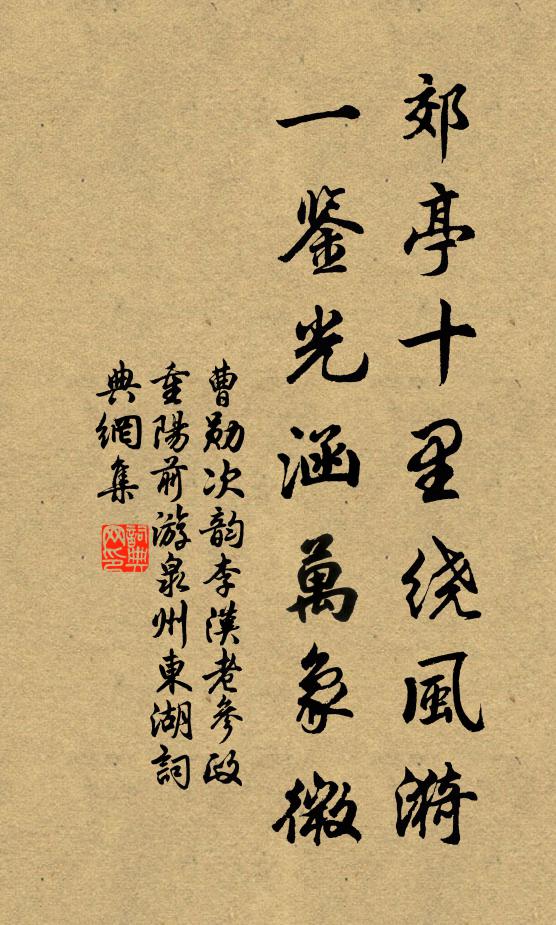 郊亭十里绕風漪
一鉴光涵萬象微
曹勛次韵李漢老參政
重陽前游泉州東湖詞
典網集
詞典网印